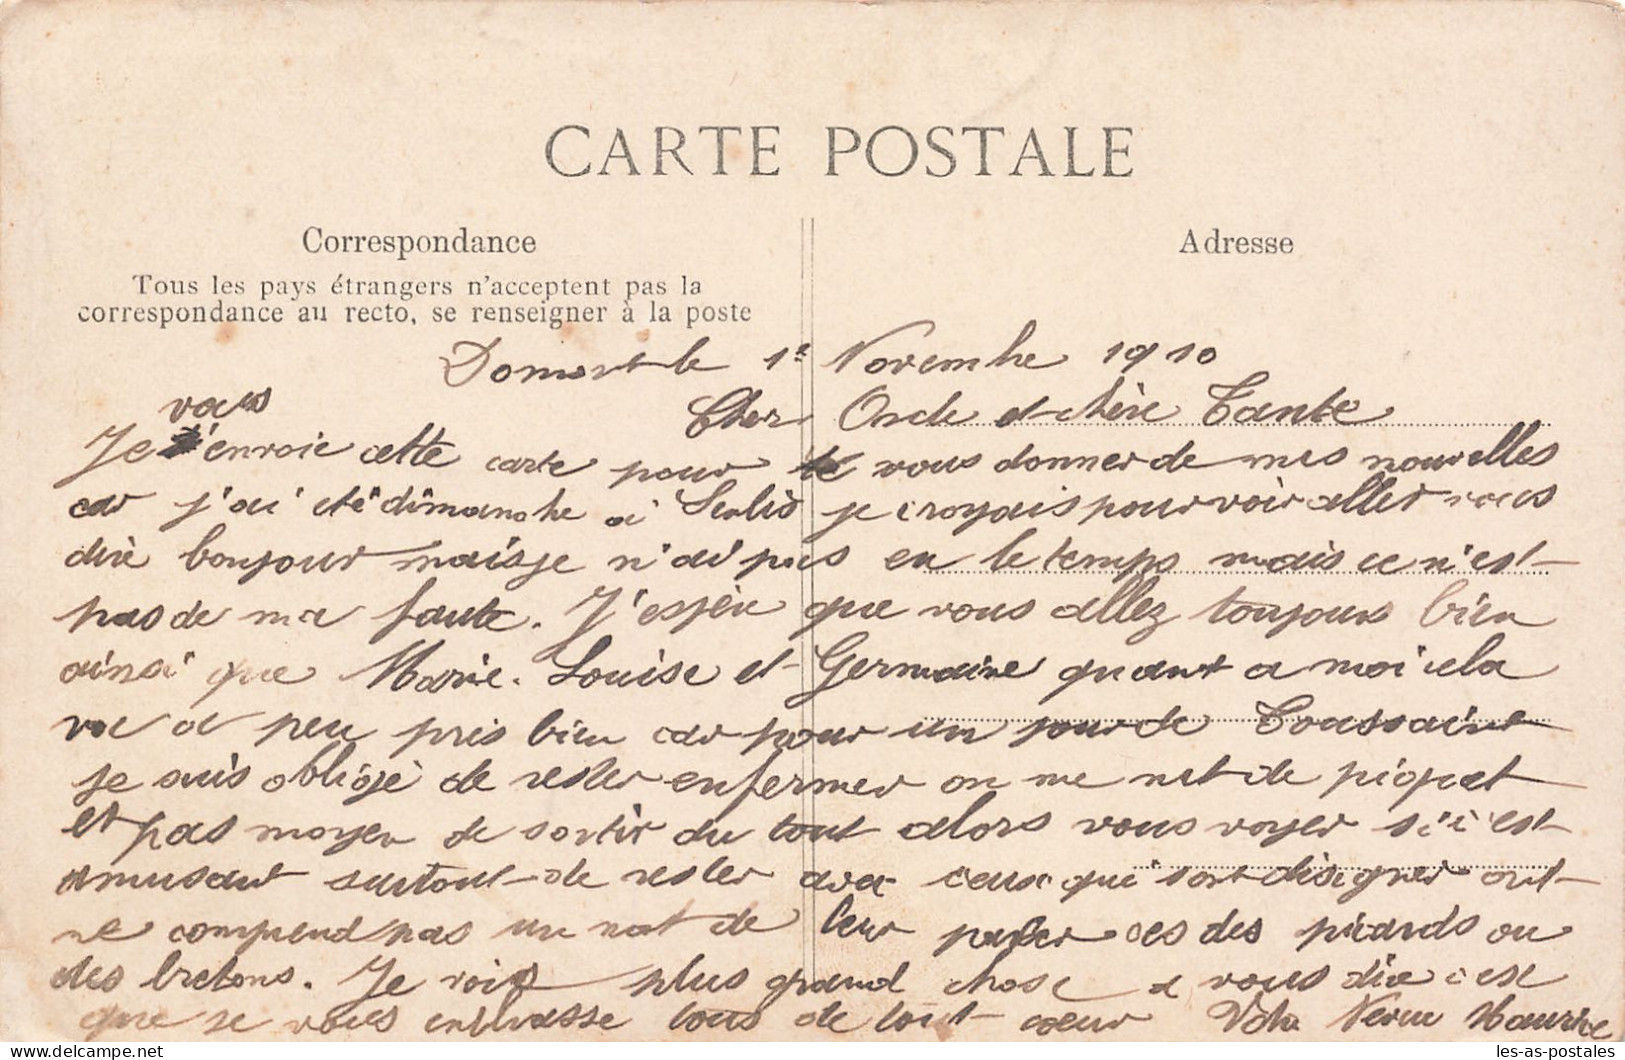 CARTE POSTALE
Correspondance
Adresse
Tous les pays étrangers n'acceptent pas la
correspondance au recto, se renseigner à la poste
Domont le 1er Novembre 1910
Cher Oncle et chère Tante
vous
Je envoie cette carte pour vous donner de mes nouvelles
car j'ai été dimanche a Senlis je croyais pouvoir aller vous
dire bonjour mais je n'ai pas eu le temps mais ce n'est
pas de ma faute. J'espère que vous allez toujours bien
ainsi que Marie-Louise et Germaine quant a moi cela
va a peu près bien car pour un jour de Toussaint
je suis obligé de rester enfermer on me met de piquet
et pas moyen de sortir du tout alors vous voyer si c'est
amusant surtout de rester avec ceux qui sont disigner ont
ne comprend pas un mot de leur parler ces des picards ou
des bretons. Je vois plus grand chose a vous dire cest
que je vous embrasse tous de tout coeur Votre Neveu Maurice
les-as-postales